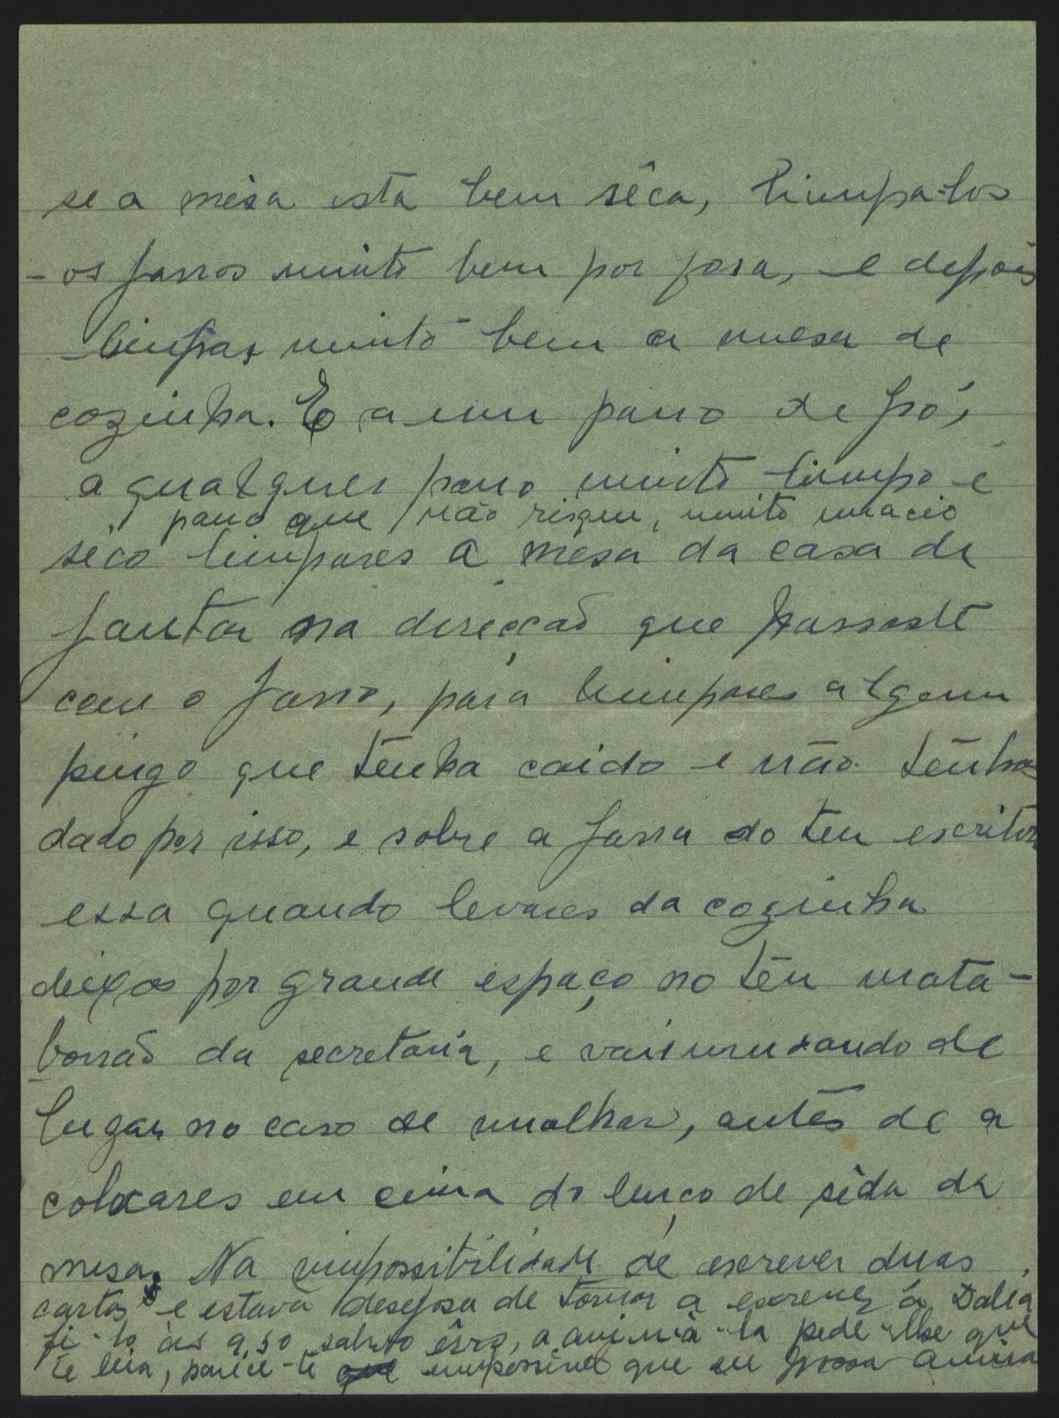 se a mêsa está bem sêca, limpa-los
- os jarros muito bem por fora, e depois
limpas muito bem a mesa de
cozinha. E a um pano de pó,
a qualquer pano muito limpo e
pano que não risque, muito macio
sêco limpares a mêsa da casa de
jantar na direcção que passaste
com o jarro, para limpares algum
pingo que tenha caido e não tenhas
dado por isso, e sobre a jarra do teu escritorio
essa quando levares da cozinha
deixas por grande espaço no teu mata-
borrão da secretaria, e vais mudando de
lugar no caso de molhar, antes de a
colocares em cima do lenço de sêda da
mesa. Na impossibilidade de escrever duas
cartas e estava desejosa de tornar a escrever á Dalia
fi-lo ás 9,30 salvo êrro, a anima-la pede-lhe que
te leia, parece-te impossivel que eu possa